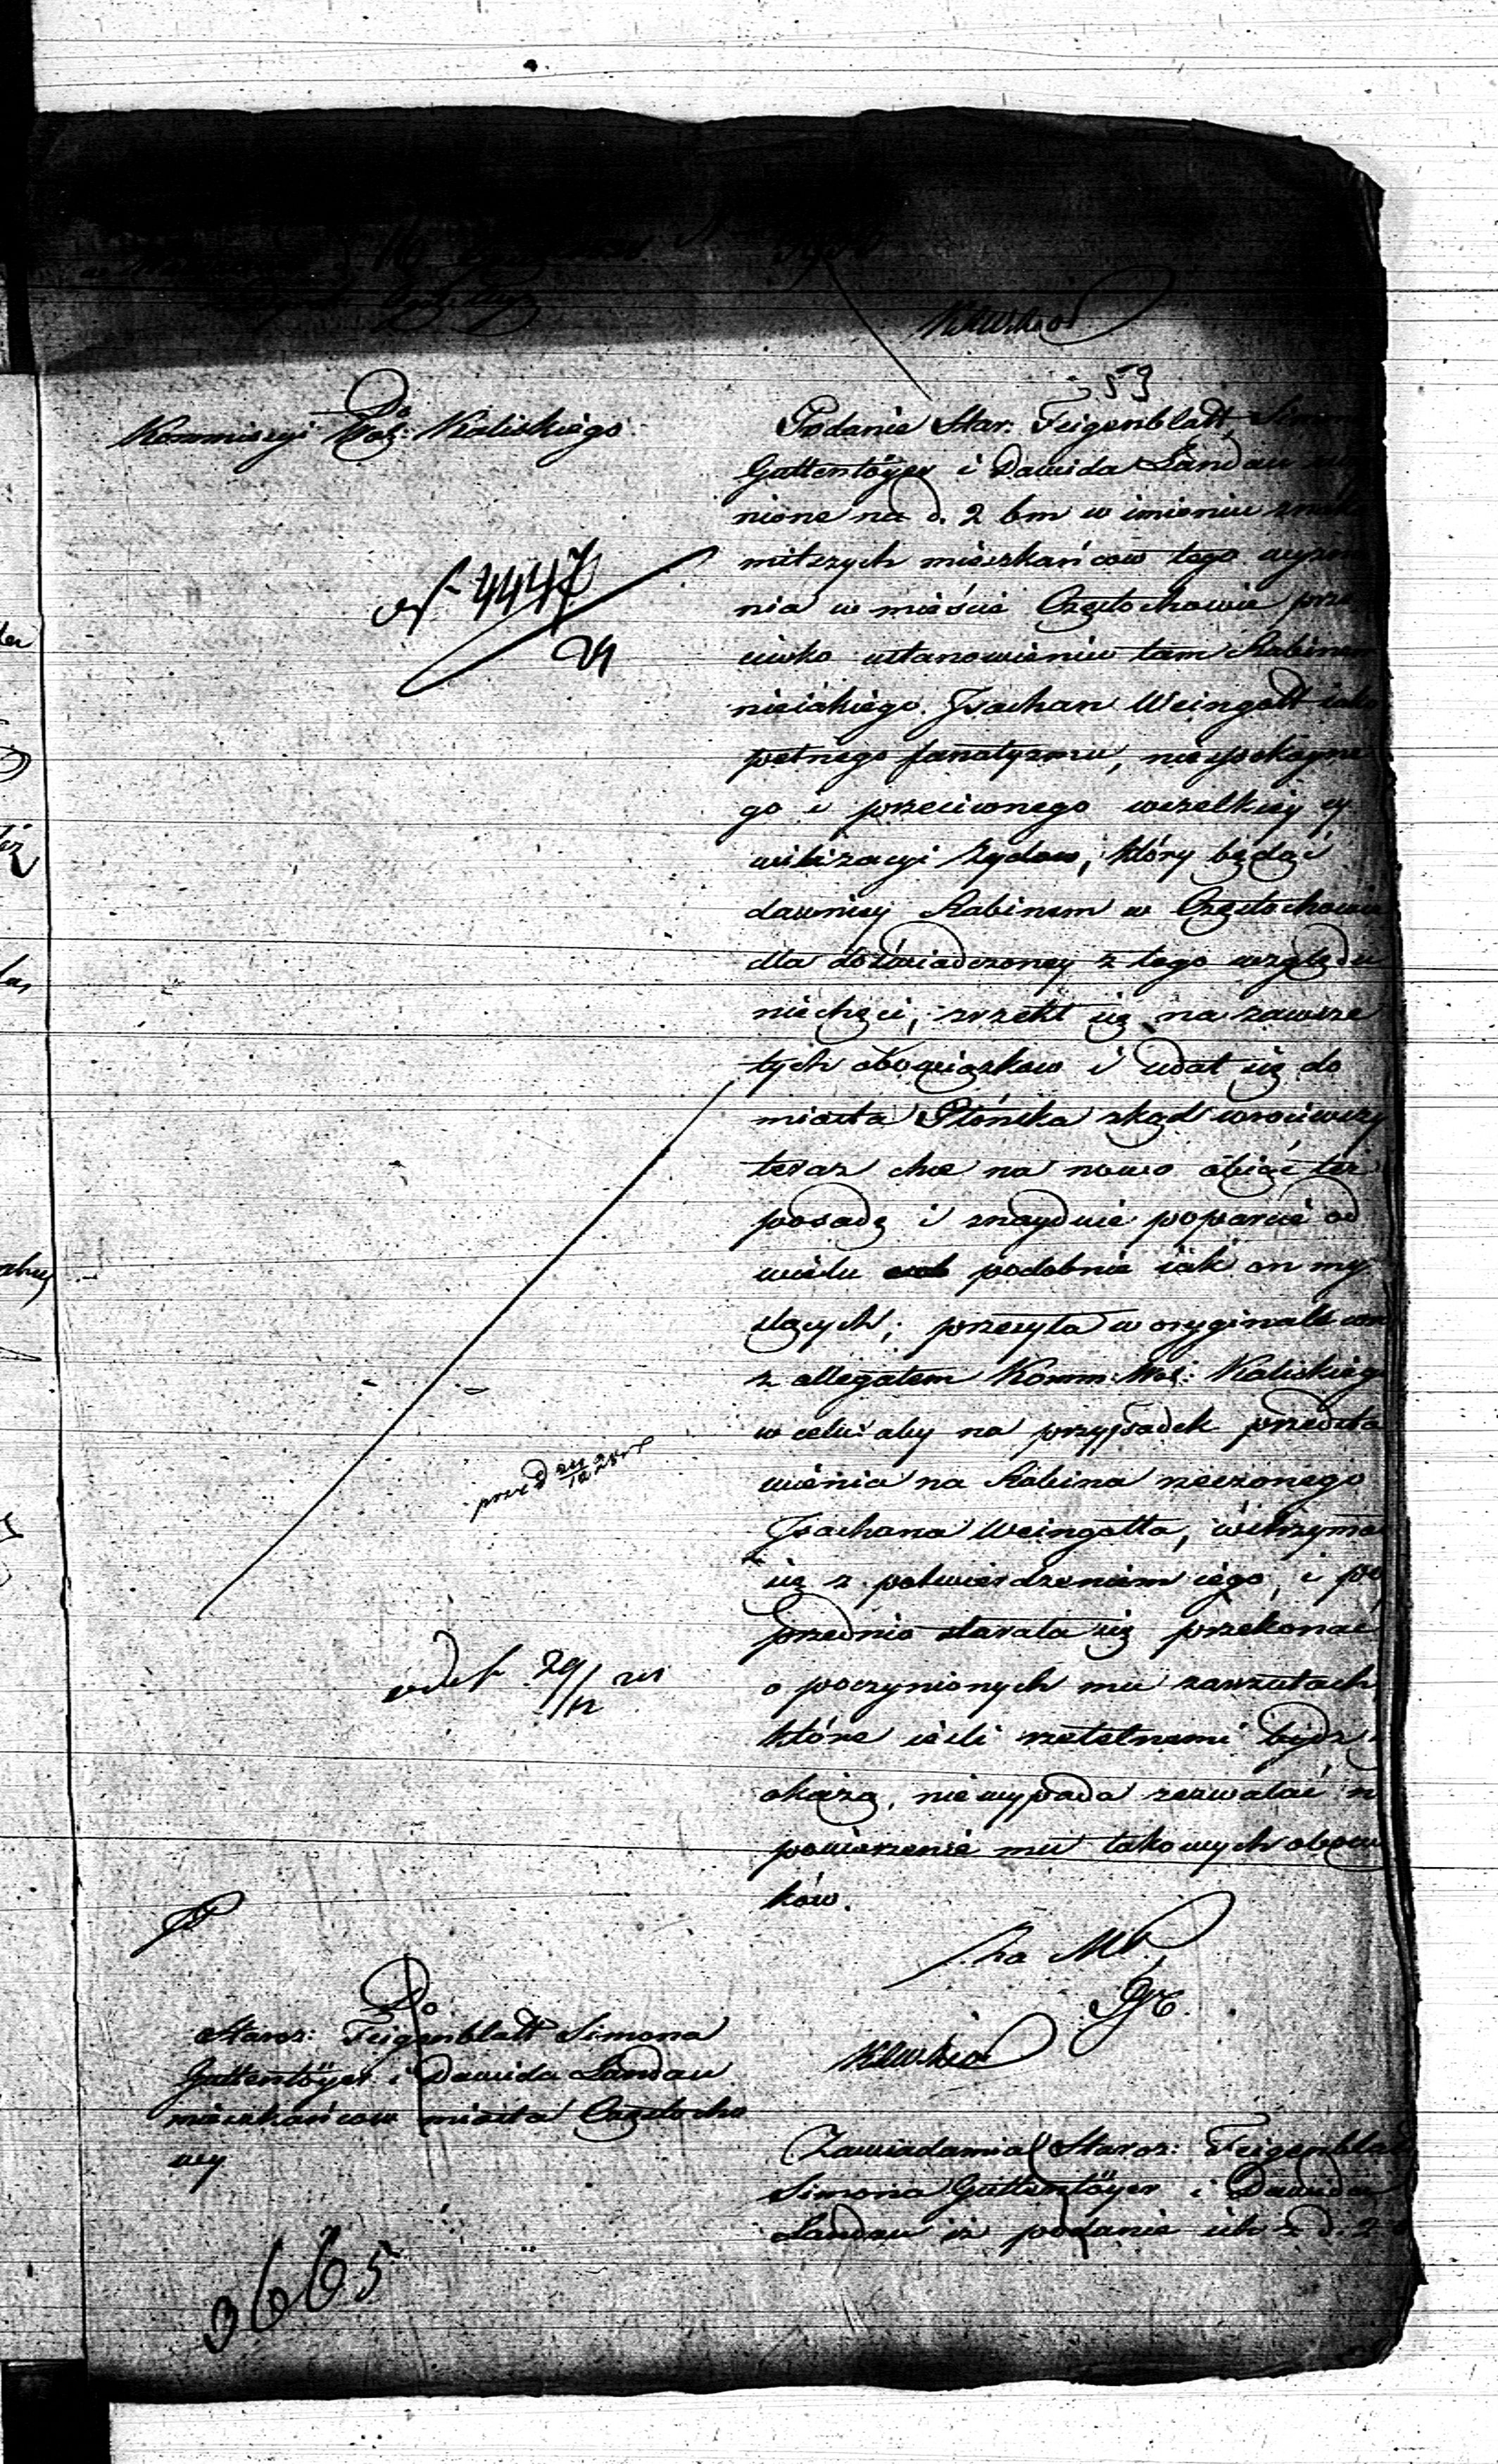 53
Do
Kommissyi Woj: Kaliskiego
N 4447
29
Podanie Star: Feigenblatt, Simona
Guttentöyer i Dawida Landau
nione na d. 2 bm w imieniu znako
mitszych mieszkańcow tego wyzna
nia w mieście Częstochowie prze
ciwko ustanowieniu tam Rabinem
nieiakiego Jsachan Weingott iako
pełnego fanatyzmu, niespokoyne
go i przeciwnego wszelkiey cy
wilizacyi Zydow, który będąc
dawniey Rabinem w Częstochowie
dla doświadczoney z tego względu
niechęci, zrzekł się na zawsze
tych obowiązkow i udał się do
miasta Płońska zkąd wrociwszy
teraz chce na nowo obiąć też
posadę i znayduie poparcie od
wielu podobnie iak on my
slących; przesyła w oryginale
z allegatem Komm: Woj: Kaliskiego
w celu aby na przypadek przedsta
wienia na Rabina rzeczonego
Jsachana Weingotta, wstrzymała
się z potwierdzeniem iego, i po
przednio starała się przekonać
o poczynionych mu zarzutach
które ieśli rzetelnemi bydź
okażą, niewypada zezwalać n
powierzenie mu takowych obowiąz
ków.
odesł 29/12
za M
Do
Staroz: Feigenblatt Simona
Guttentöyer i Dawida Landau
mieszkańcow miasta Częstocho
wy
Zawiadamia Staroz: Feigenblatt
Simona Guttentöyer i Dawida
Landau iż podanie ich z d. 2
3665